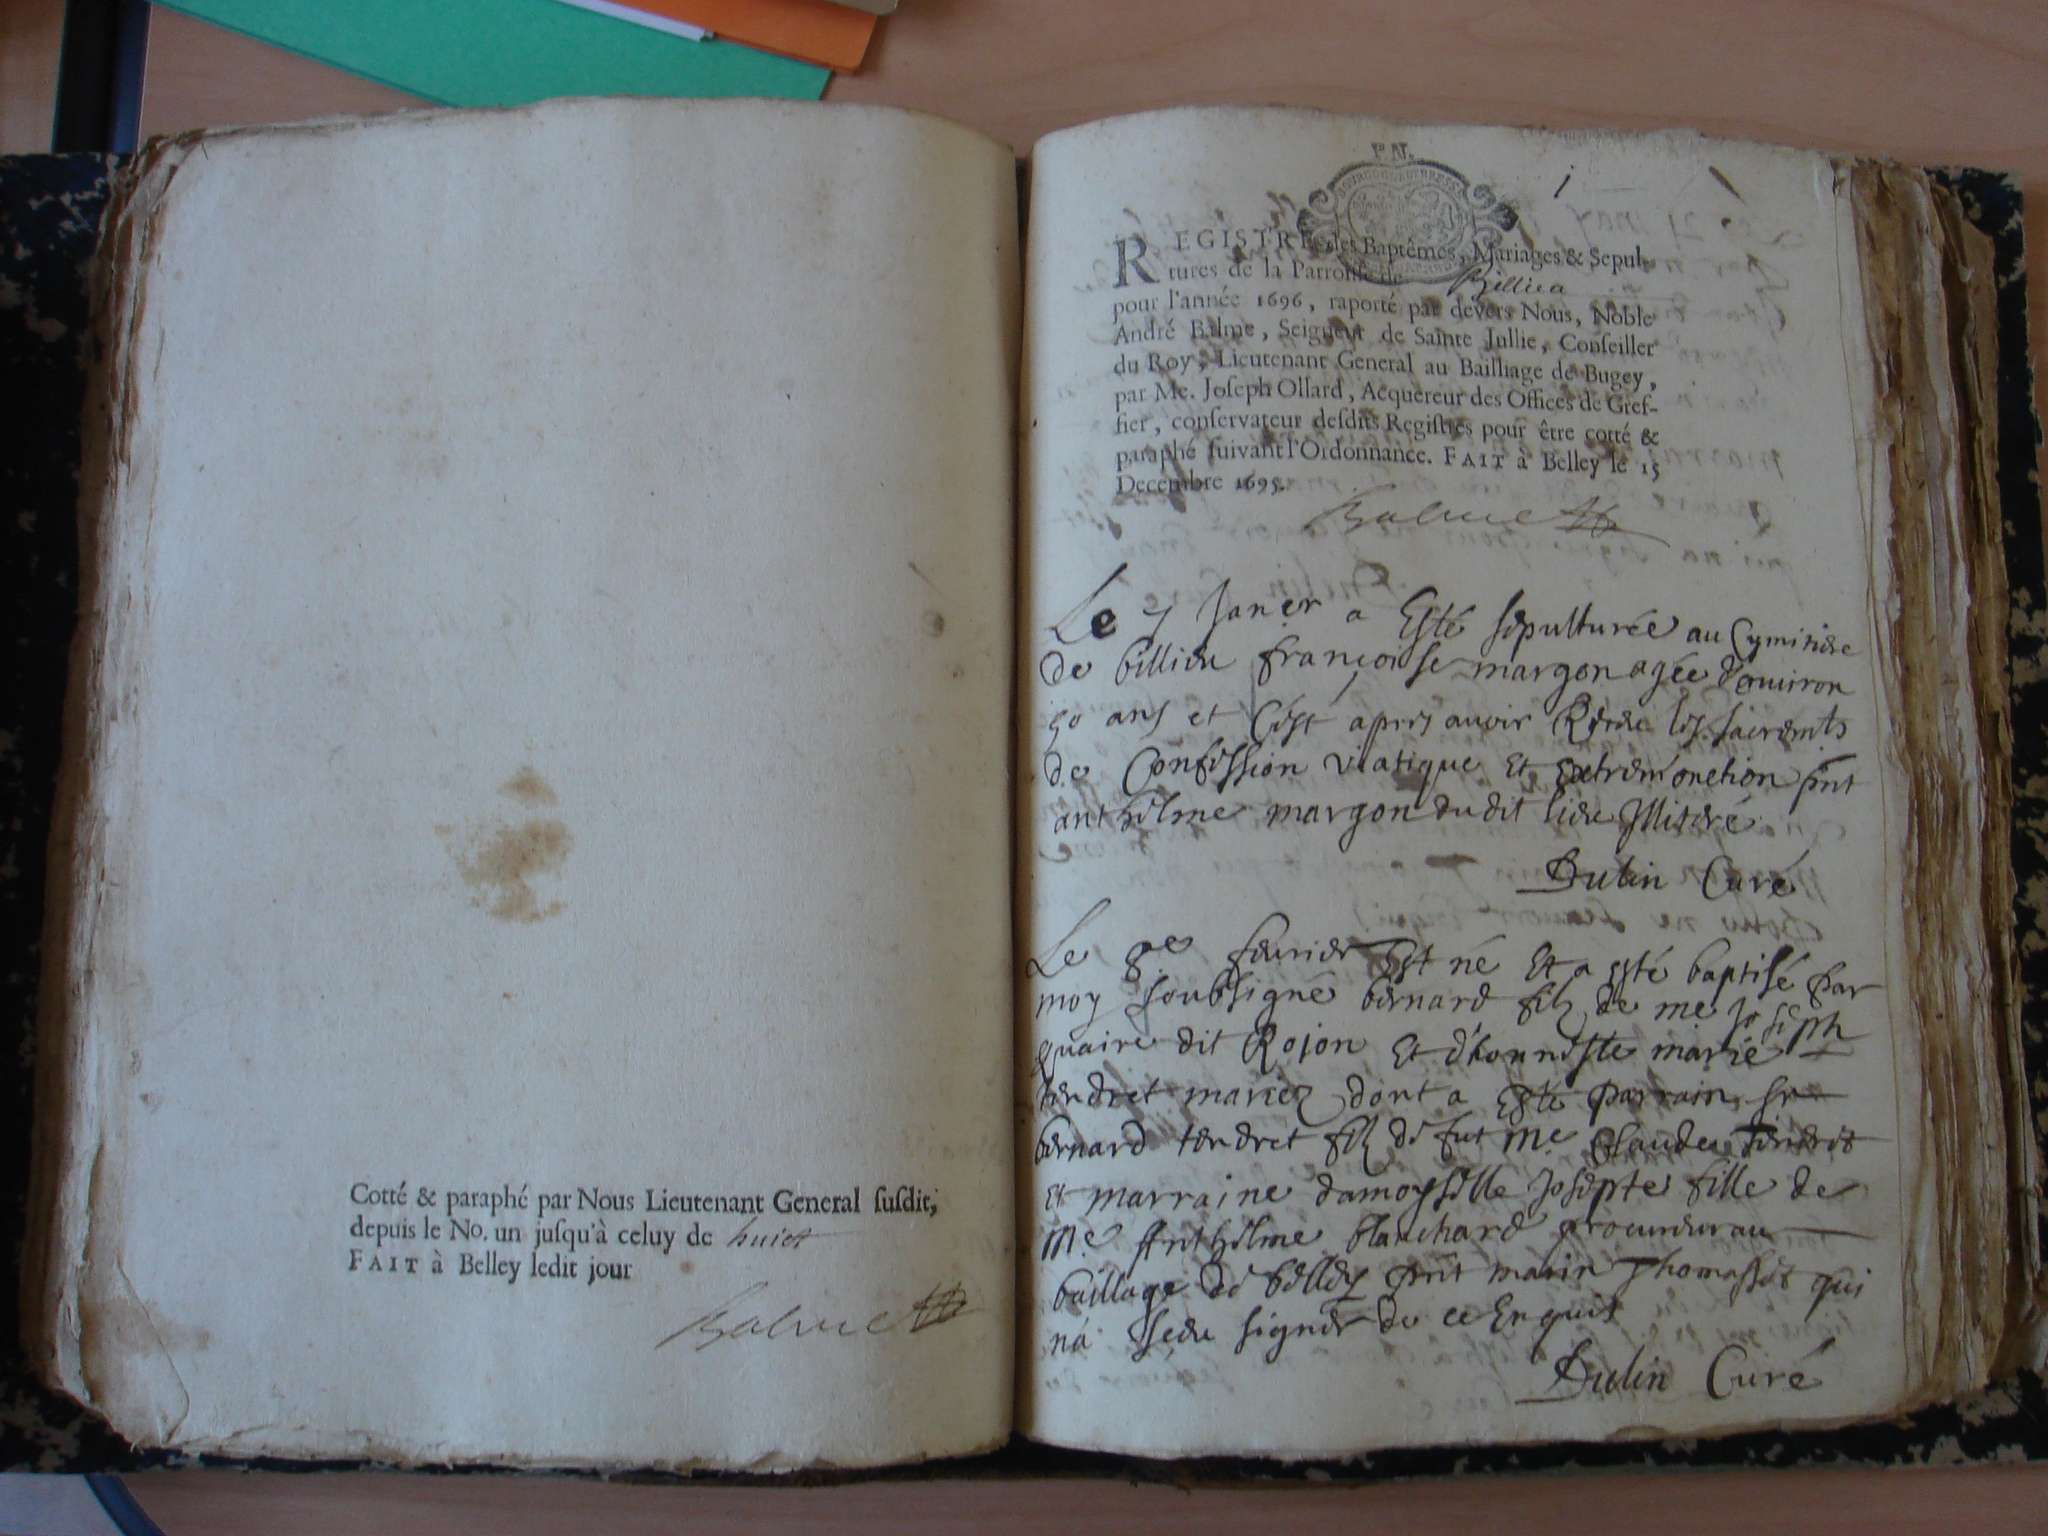 Cotté & paraphé par Nous Lieutenant General susdit,
depuis le No. un jusqu'à celuy de huict
FAIT à Belley ledit jour
Balme
P. N.
i
REGISTRE des Baptêmes, Mariages & Sepul-
tures de la Parroisse de Billieu
pour l'année 1696, raporté par devers Nous, Noble
André Balme, Seigneur de Sainte Jullie, Conseiller
du Roy, Lieutenant General au Bailliage de Bugey,
par Me. Joseph Ollard, Acquereur des Offices de Gref-
fier, conservateur desdits Registres pour être cotté &
paraphé suivant l'Ordonnance. FAIT à Belley le 15
Decembre 1695.
Balme
Le 7 Janer a Esté sepulturée au Cymitiere
de billieu françoise margon agée d'environ
50 ans et C'est apres avoir Receu les sacremts
de Confession viatique Et extremonction pnt
anthelme margon dudit lieu Illiteré
Dulin Curé
Le 8e fevrier Est né Et a esté baptisé par
moy soubsigné bernard filz de me Joseph
quaire dit Rojon Et d'honneste marie
tendret mariez dont a Esté parrain sr
bernard tendret filz de fut Me Claude tendret
Et marraine damoyselle Josepte fille de
Me Anthelme blanchard procureur au
baillage de belley pnt marin Thomasset qui
na sceu signer de ce Enquis
Dulin Curé